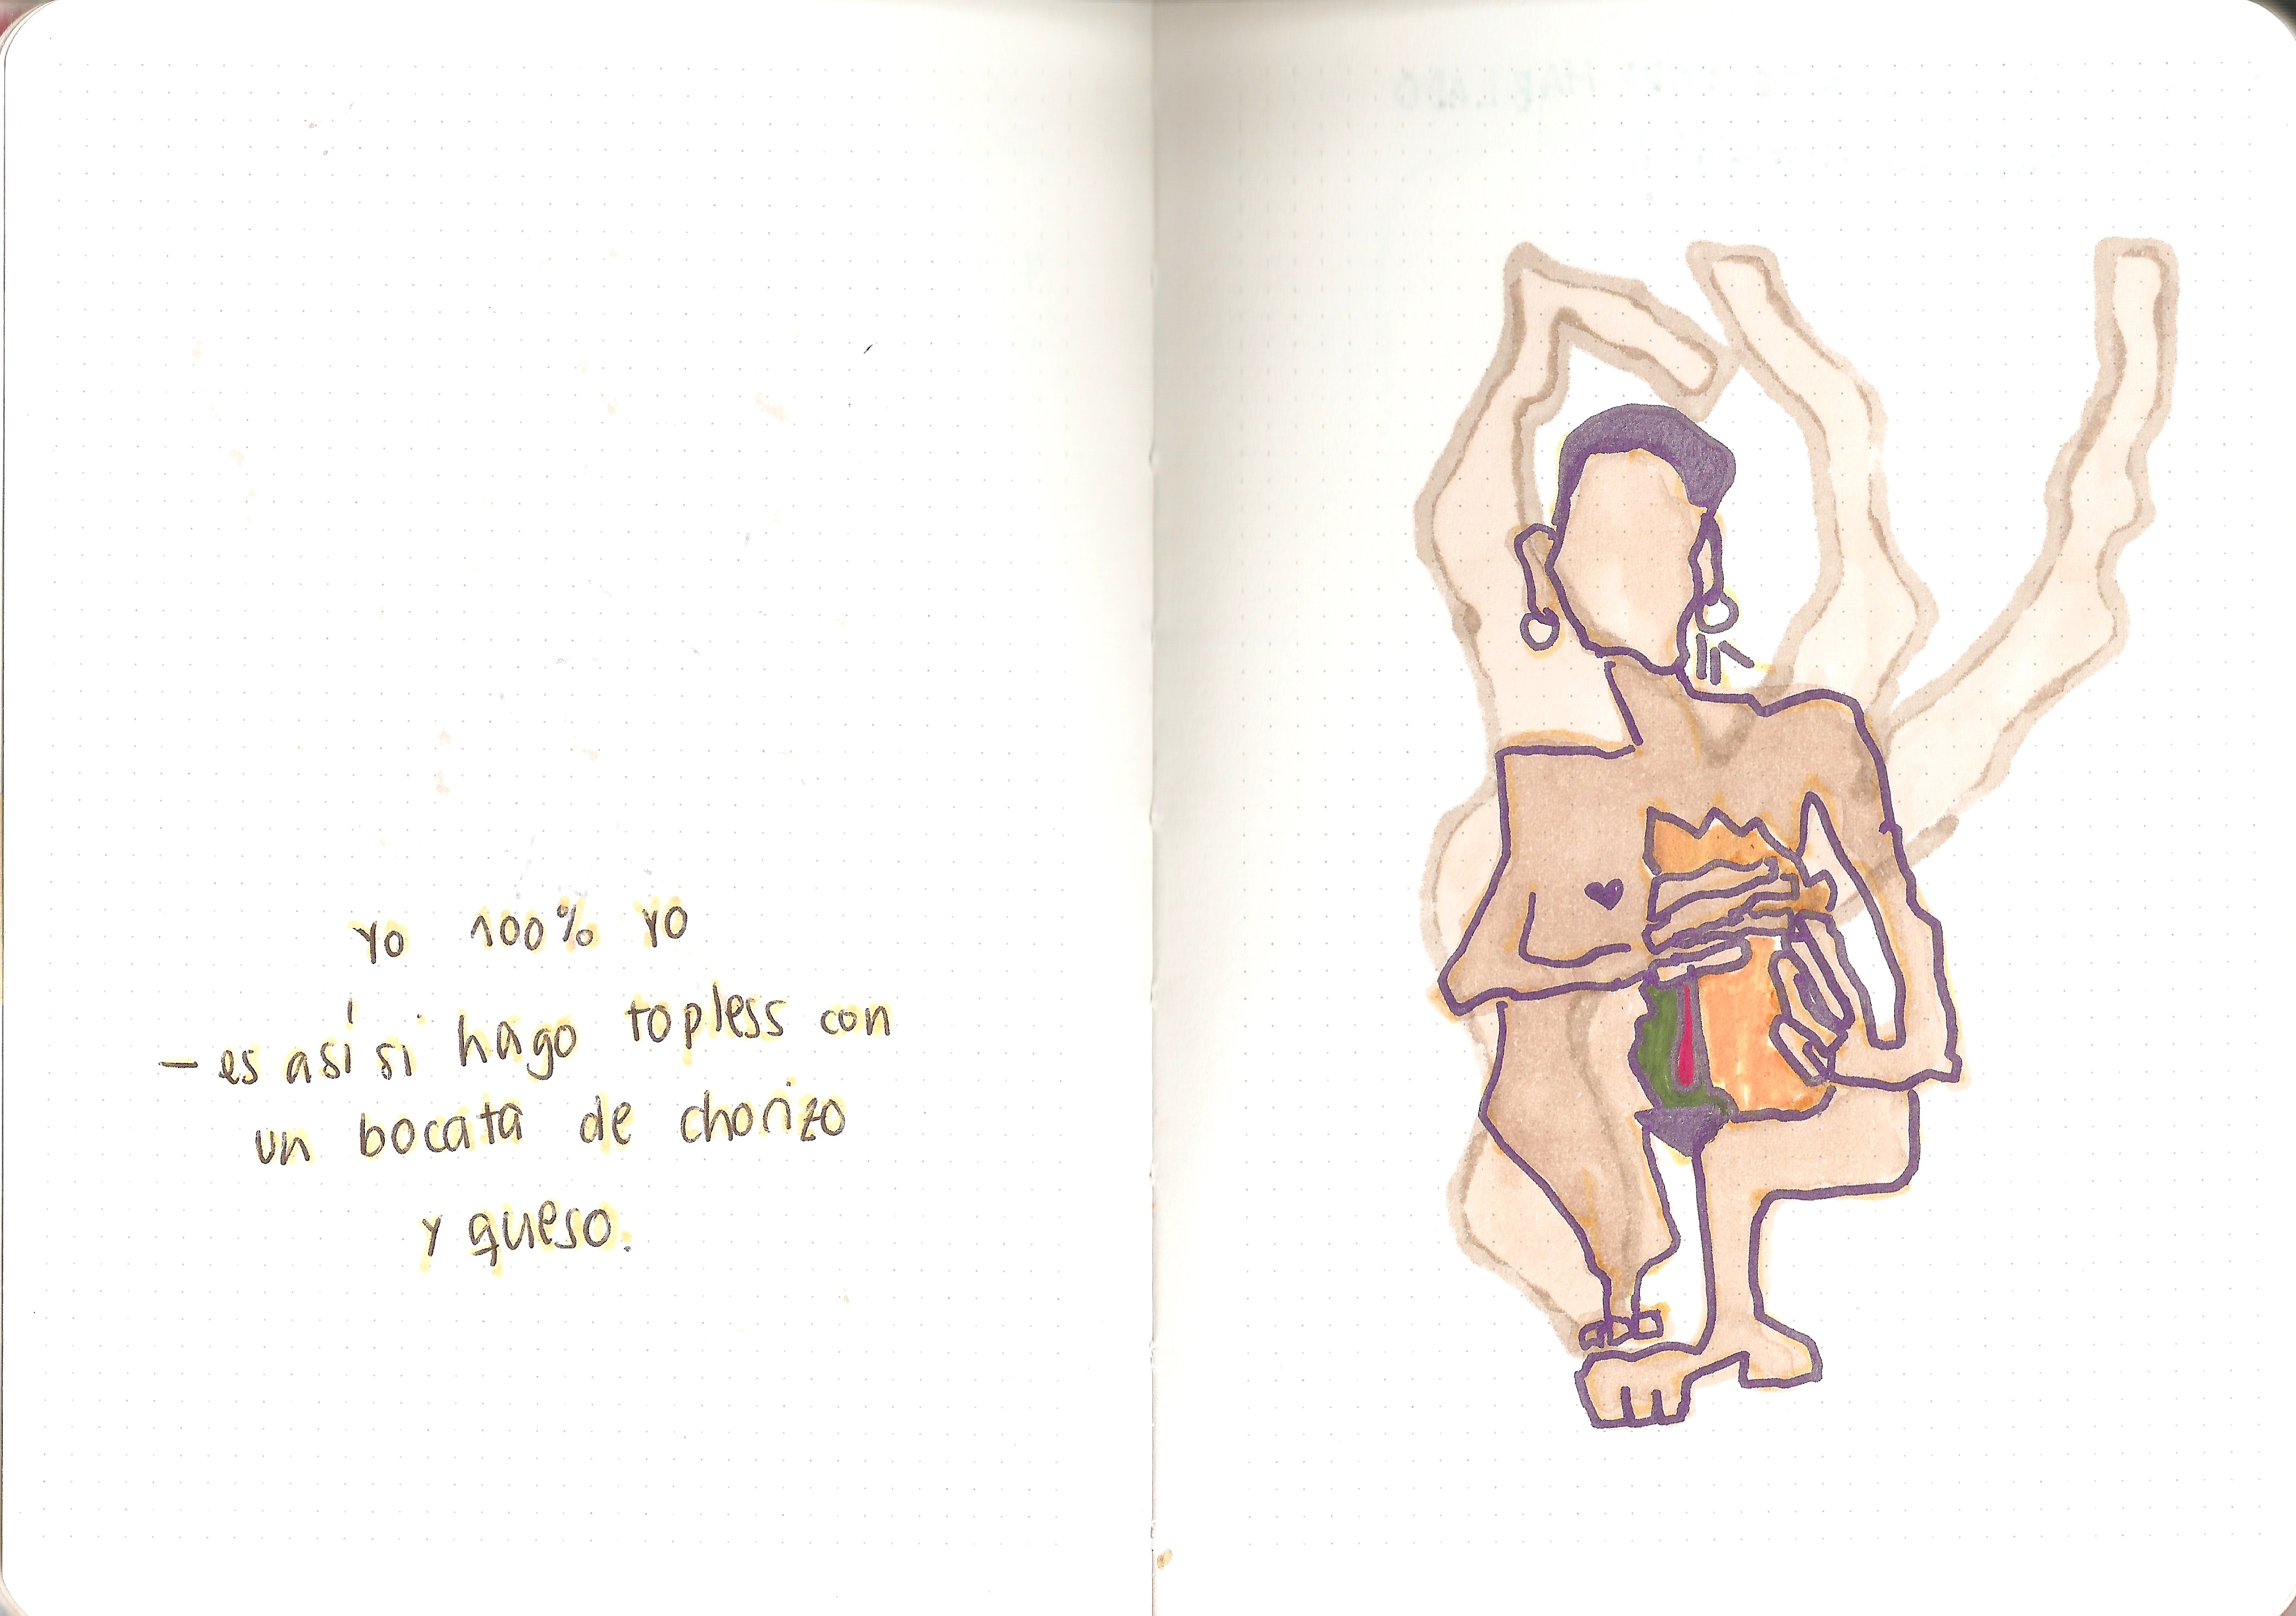 yo 100% yo
– es así si hago topless con
un bocata de chorizo
y queso.